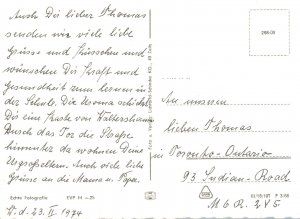 Auch Dir lieber Thomas
senden wir viele liebe
Grüsse und Küsschen und
wünschen Dir Kraft und
Gesundheit zum lernen in
der Schule. Die Uroma schickt
Dir eine Karte von Waltershausen
Durch das Tor die Strasse
hinunter da wohnen Deine
Urgroßeltern. Auch viele liebe
Grüsse an die Mama u. Papa.
Echte Fotografie
EVP M -.25
W. d. 23. II. 1974
288-05
An unseren
lieben Thomas
in Toronto-Ontario
93. Indian-Road
M6R 2V5